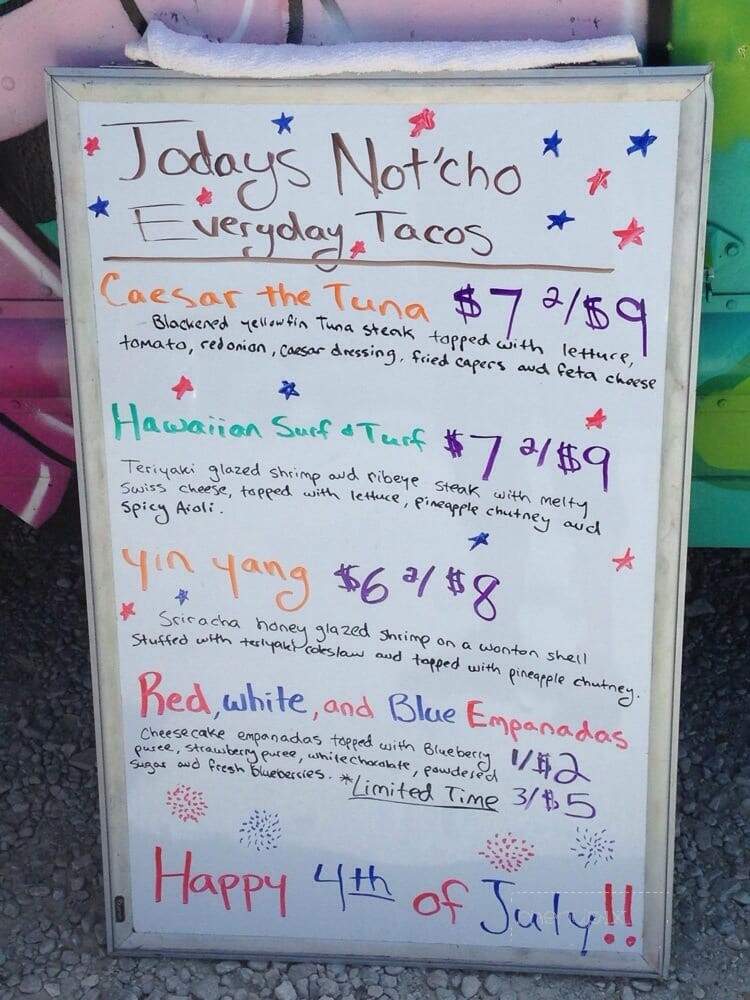 Todays Not'cho
Everyday Tacos
Caesar the Tuna $7 2/$9
Blackened yellowfin Tuna steak topped with lettuce,
tomato, red onion, caesar dressing, fried capers and feta cheese
Hawaiian Surf & Turf $7 2/$9
Teriyaki glazed shrimp and ribeye steak with melty
Swiss cheese, topped with lettuce, pineapple chutney and
Spicy Aioli.
Yin Yang $6 2/$8
Sriracha honey glazed shrimp on a wonton shell
Stuffed with teriyaki coleslaw and topped with pineapple chutney.
Red, white, and Blue Empanadas
Cheesecake empanadas topped with Blueberry
puree, strawberry puree, white chocolate, powdered 1/$2
sugar and fresh blueberries. *Limited Time 3/$5
Happy 4th of July!!